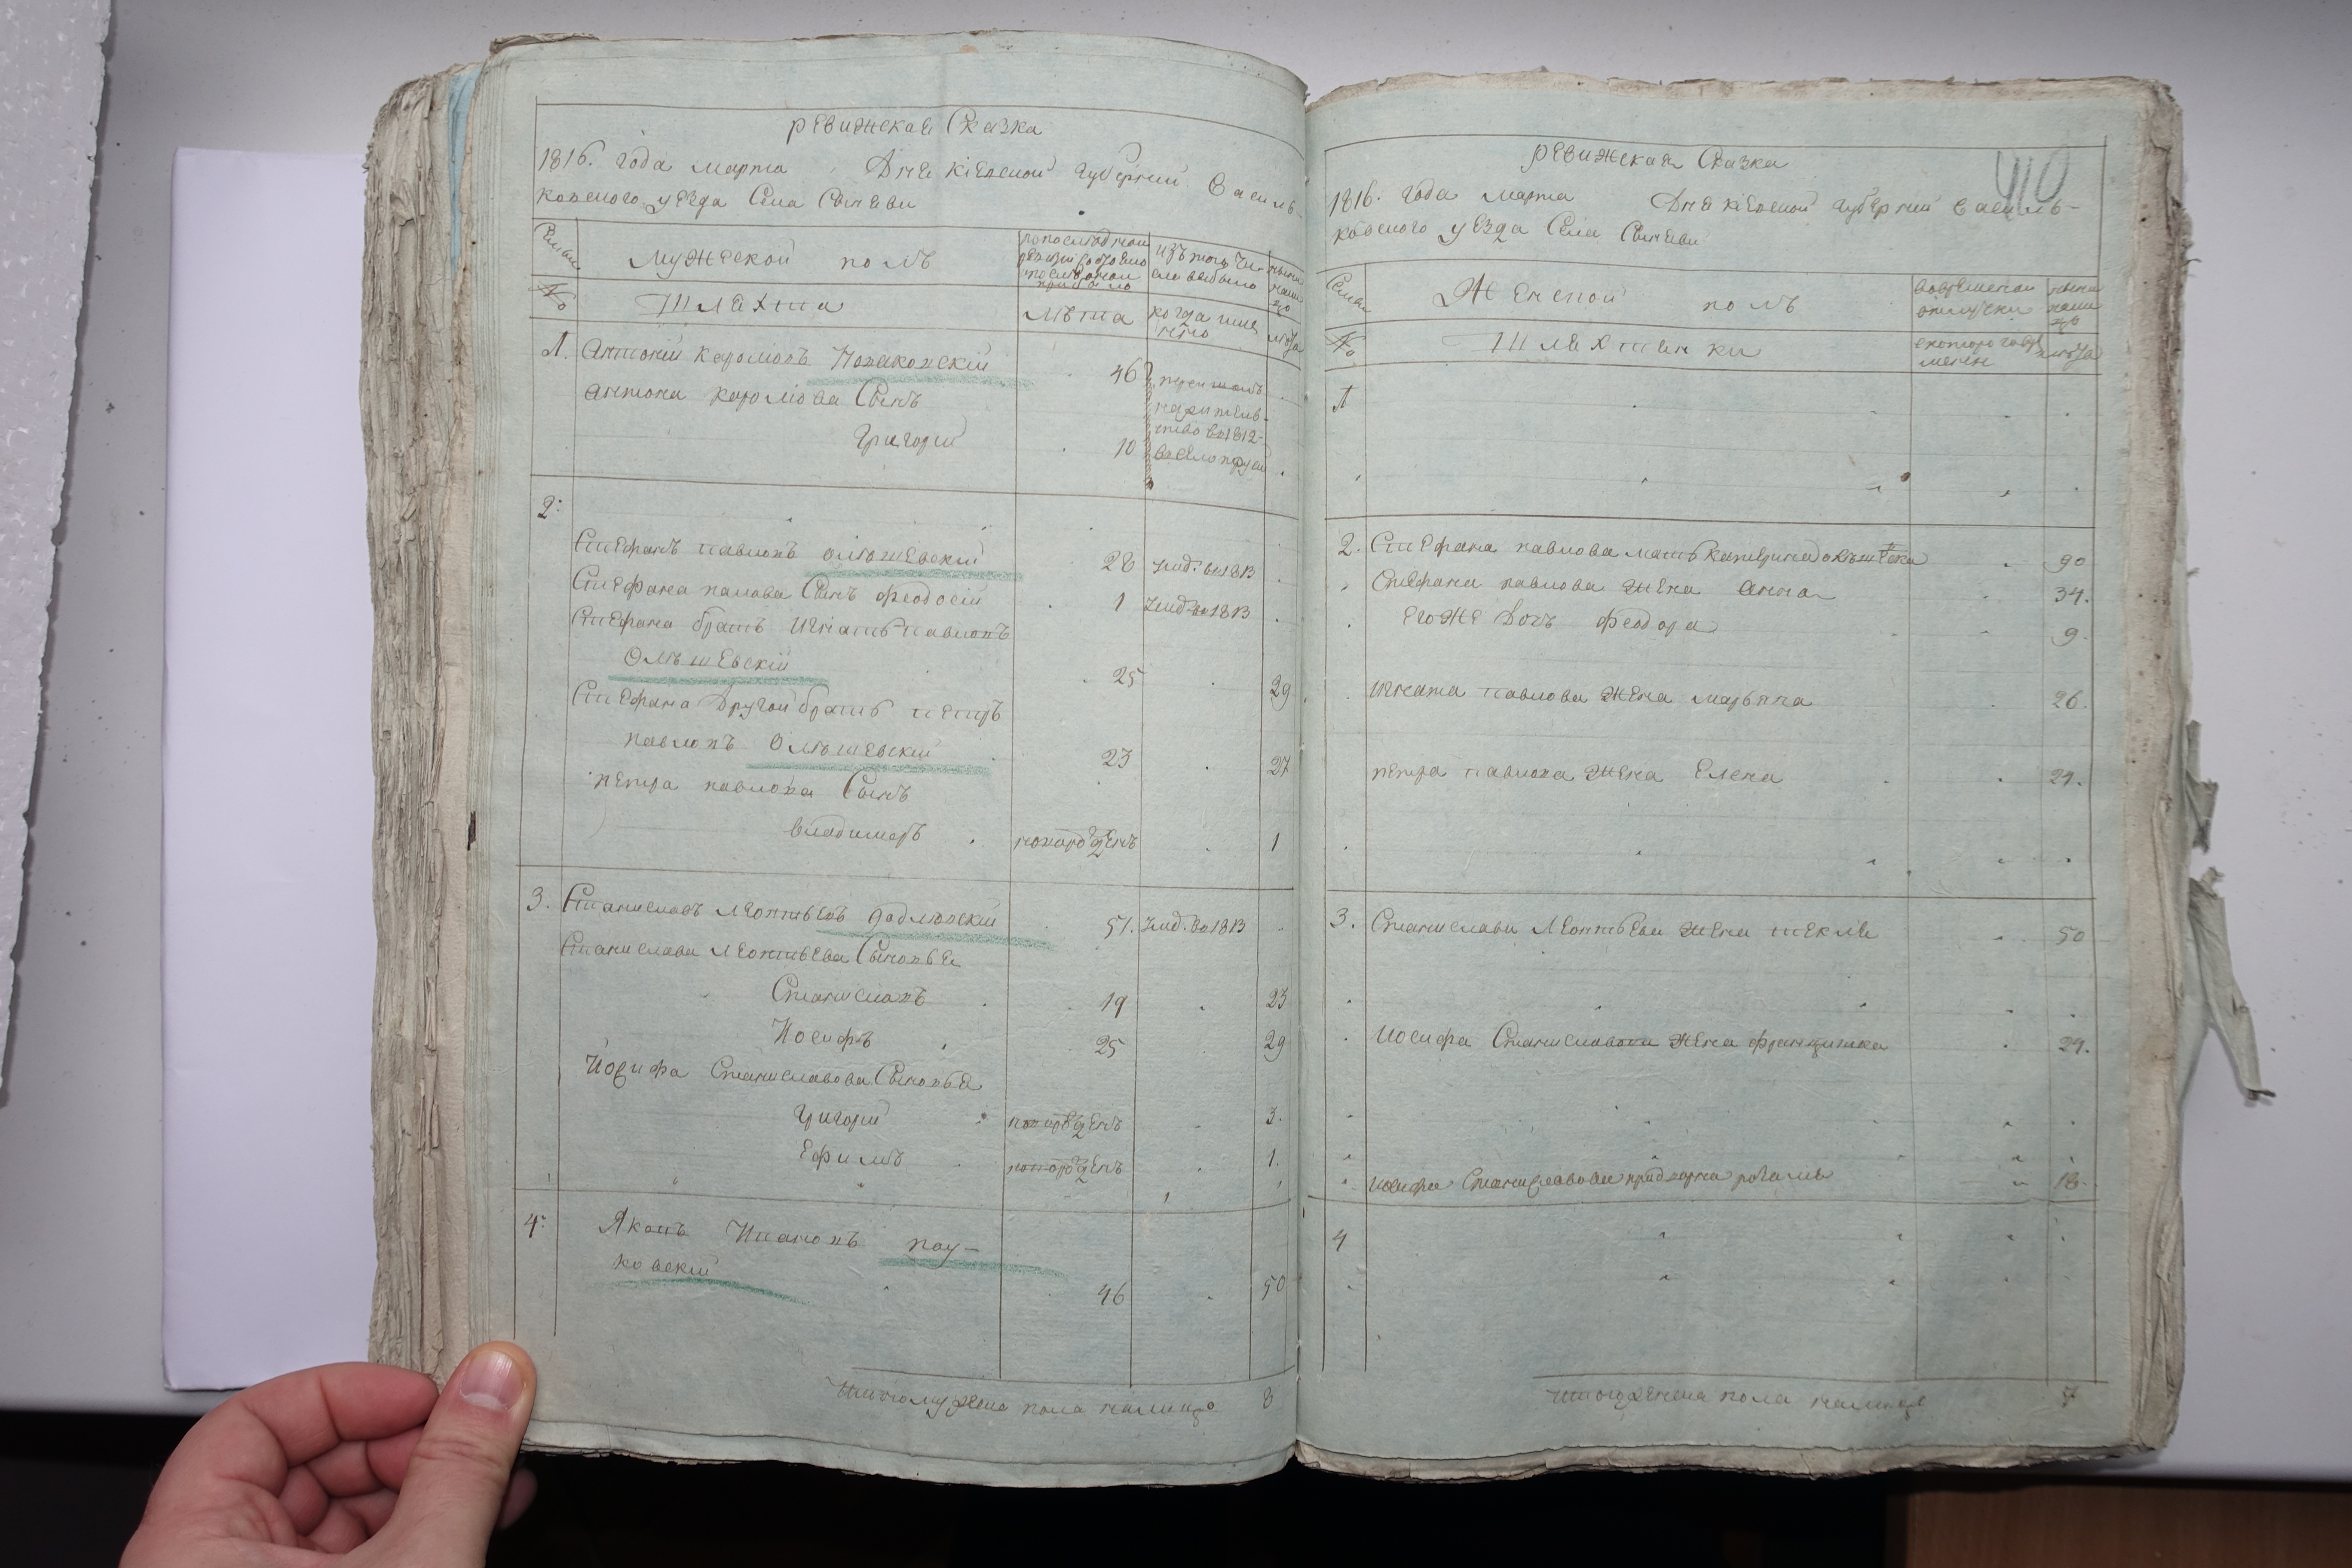 ревижская Сказка
1816. года марта Дня кіевской губерніи Василь-
ковского уезда Села Сытеви
Семьи
Мужеской полъ
по последней ревизіи состояло и после оной прибыло
изъ того числа выбыло
ныне на лицо
№
Шляхта
лета
когда имено
лета
1. Антоній Каролювъ Новаковскій 46
Антона каролюва Сынъ
Григорій 10
перешолъ на жительство въ 1812-
2.
Стефанъ павловъ Олешевскій 28 умер. въ 1813
Стефана павлова Сынъ Феодосій 1 умер. въ 1813
Стефана братъ Игнатъ павловъ
Олешевскій 25 29
Стефана Другой братъ петръ
павловъ Олешевскій 23 27
петра павлова Сынъ
владимеръ новорожденъ 1
3. Станиславъ Леонтьевъ 51. умер. въ 1813
Станислава Леонтьева Сыновья
Станиславъ 19 23
Иосифъ 25 29
Иосифа Станиславова Сыновья
Григорій новорожденъ 3.
Ефимъ новорожденъ 1.
4. Яковъ Ивановъ пау-
ковскій 46 50
Итого мужеска пола налицо 8
410
ревижская Сказка
1816. года марта Дня кіевской губерніи Василь-
ковского уезда Села Сытеви
Семьи
Женской полъ
во временной отлучки
ныне на лицо
№
Шляхтянки
с которого времени
лета
1
2. Стефана павлова мать катерина 90
Стефана павлова жена Анна 34.
Его же Дочь Феодора 9.
Игната павлова жена Марьяна 26.
петра павлова жена Елена 24.
3. Станислава Леонтьева жена текля 50
Иосифа Станиславова жена францишка 24.
Иосифа Станиславова 18.
4
Итого женска пола налицо 7